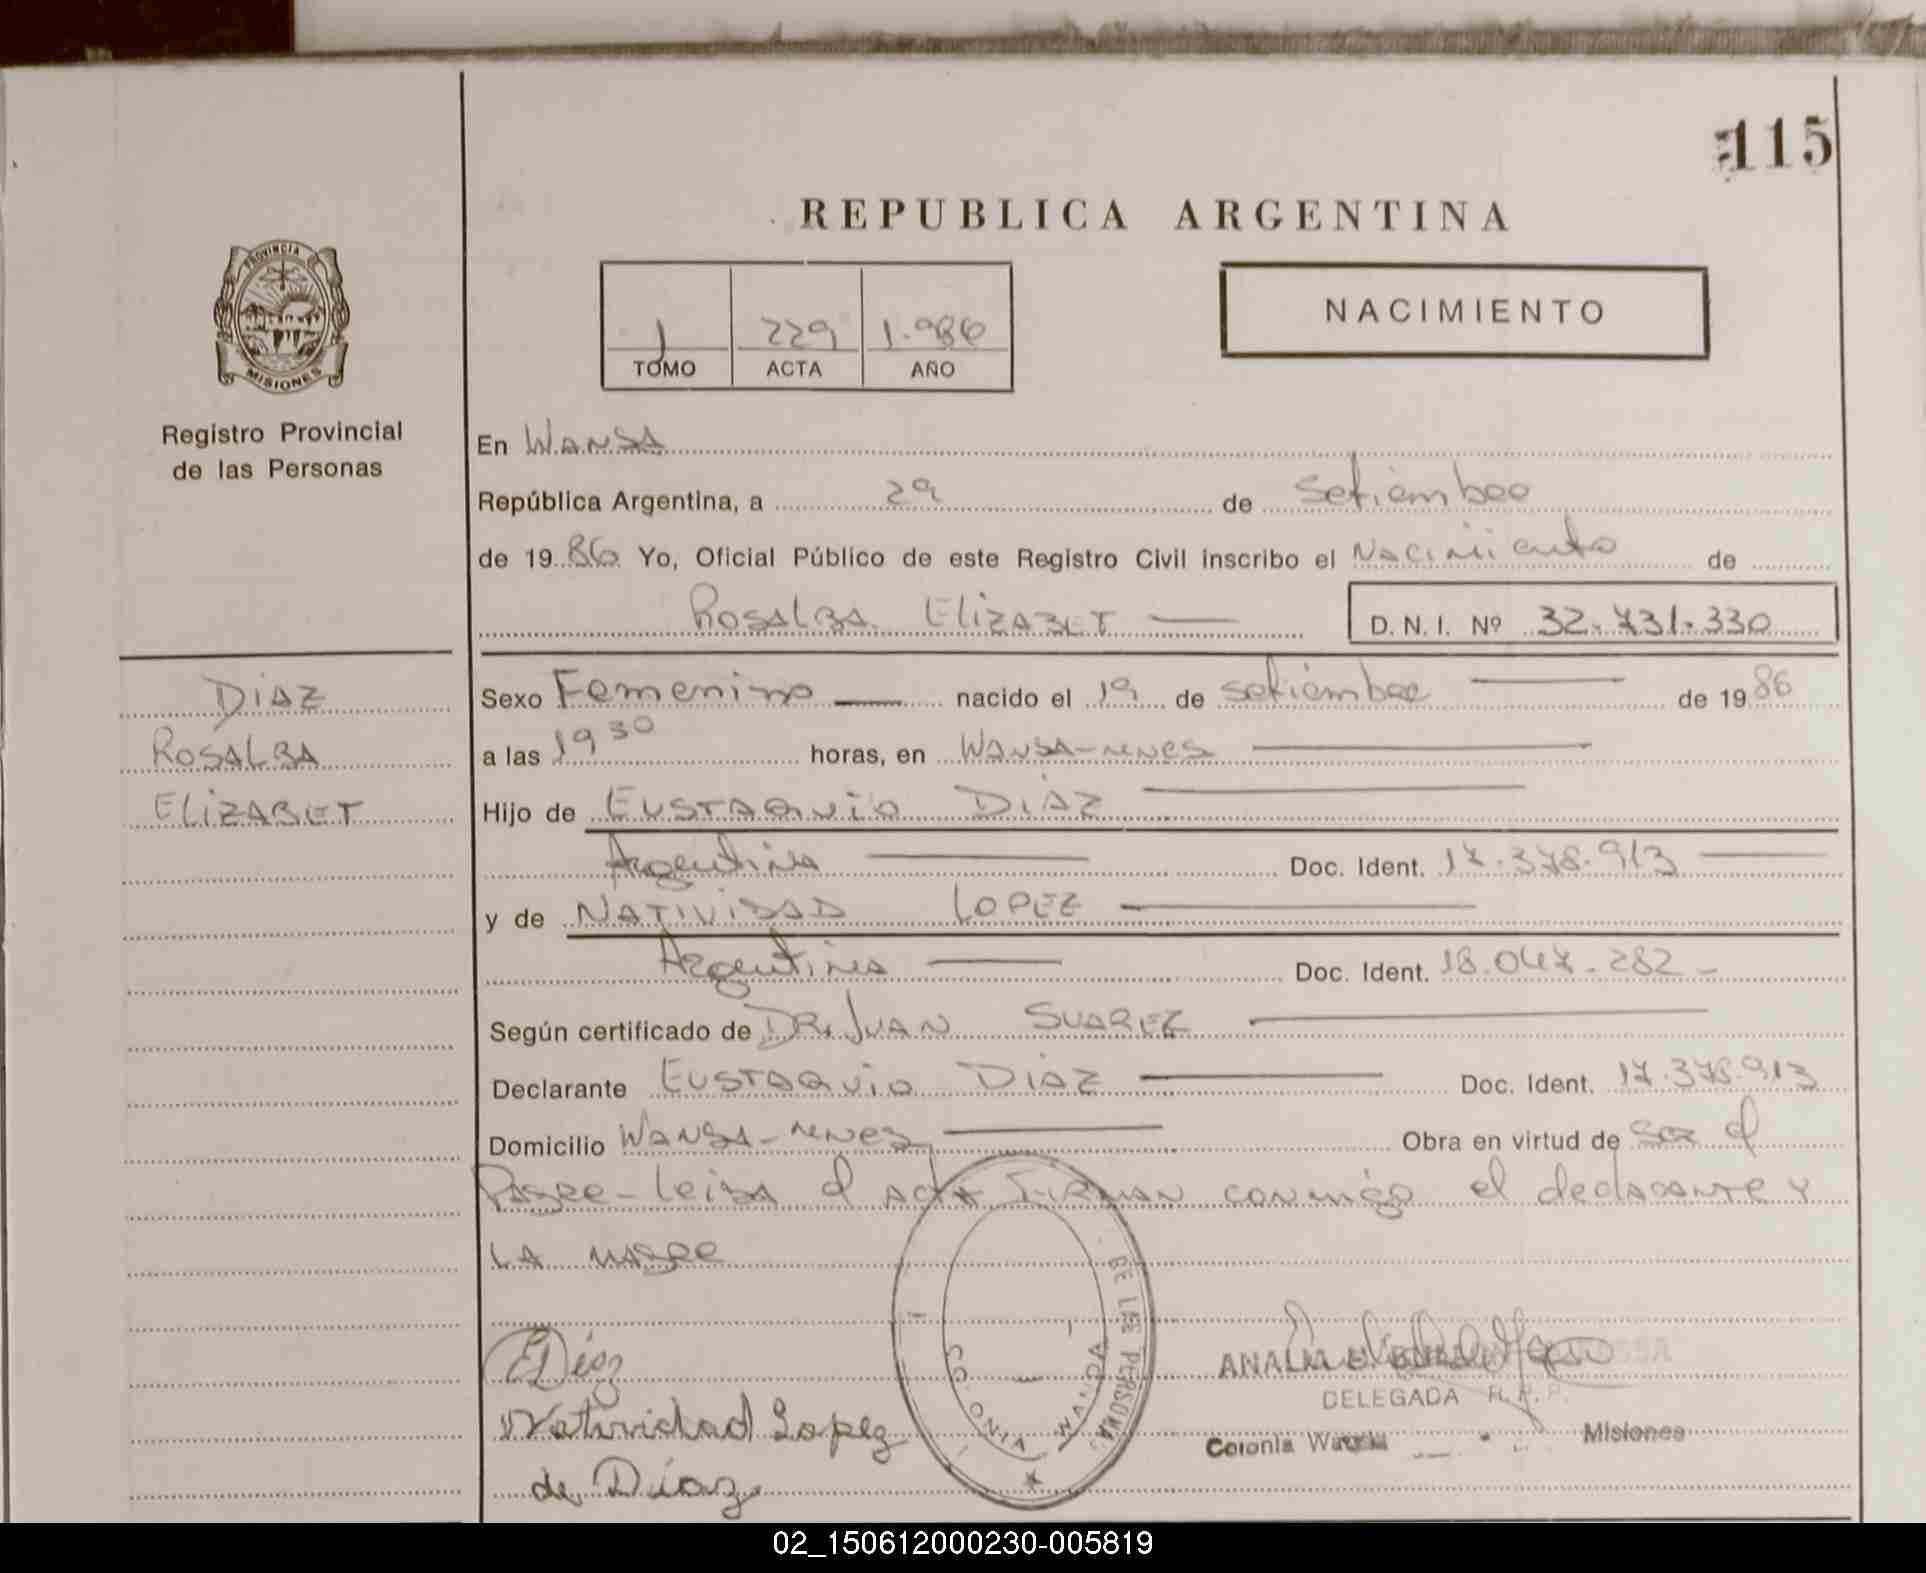 115
REPUBLICA ARGENTINA
PROVINCIA D
MISIONES
Registro Provincial
de las Personas
1 229 1.986
TOMO ACTA AÑO
NACIMIENTO
En Wanda
República Argentina, a 29 de Setiembre
de 1986 Yo, Oficial Público de este Registro Civil inscribo el Nacimiento de
Rosalba Elizabet D. N. I. Nº 32.731.330
DIAZ
ROSALBA
ELIZABET
Sexo Femenino nacido el 19 de setiembre de 1986
a las 19 30 horas, en Wanda-mnes
Hijo de EUSTAQUIO DIAZ
Argentino Doc. Ident. 17.378.913
y de NATIVIDAD LOPEZ
Argentina Doc. Ident. 18.047.282-
Según certificado de DR. JUAN SUAREZ
Declarante EUSTAQUIO DIAZ Doc. Ident. 17.378.913
Domicilio Wanda-mnes Obra en virtud de ser el
Padre-leida el acta firman conmigo el declarante y
LA madre
EDíaz
Natividad Lopez
de Díaz
DE LAS PERSONAS
COLONIA WANDA
ANALIA
DELEGADA R. P. P.
Colonia Wanda Misiones
02_150612000230-005819